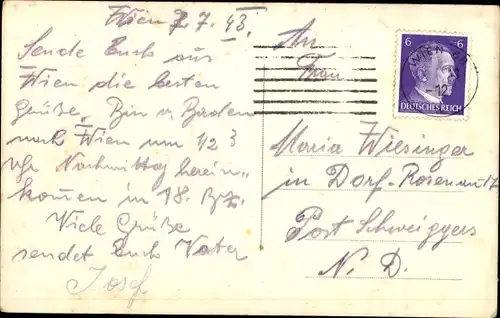 Wien 7. 7. 43.
Sende Euch aus
Wien die besten
Grüße. Bin v. Baden
nach Wien um 1/2 3
Uhr Nachmittag herein=
kommen in 18. Bez.
Viele Grüße
sendet Euch Vater
Josef
An
Frau
Maria Wiesinger
in Dorf-Rosenau 17
Post Schweiggers
N. D.
6 6
DEUTSCHES REICH
WIEN
-12